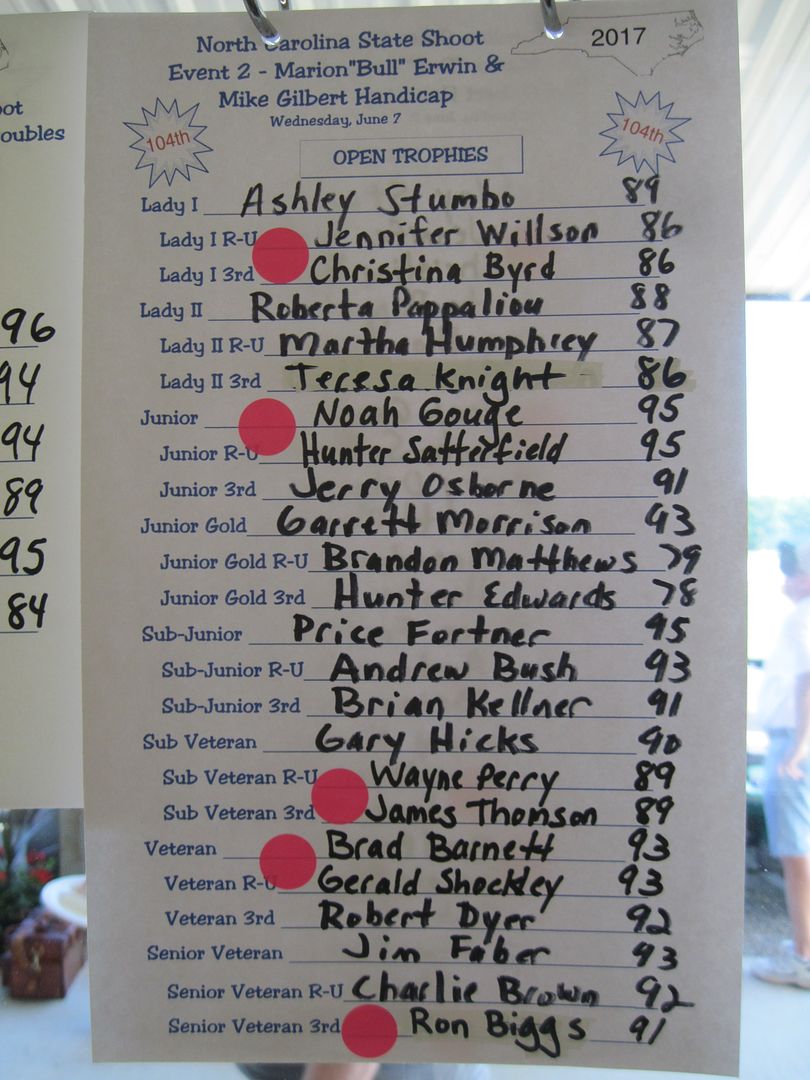 North Carolina State Shoot
2017
Event 2 - Marion"Bull" Erwin &
Mike Gilbert Handicap
Wednesday, June 7
104th
104th
OPEN TROPHIES
Lady I Ashley Stumbo 89
Lady I R-U Jennifer Willson 86
Lady I 3rd Christina Byrd 86
Lady II Roberta Pappaliou 88
Lady II R-U Martha Humphrey 87
Lady II 3rd Teresa Knight 86
Junior Noah Gouge 95
Junior R-U Hunter Satterfield 95
Junior 3rd Jerry Osborne 91
Junior Gold Garrett Morrison 93
Junior Gold R-U Brandon Matthews 79
Junior Gold 3rd Hunter Edwards 78
Sub-Junior Price Fortner 95
Sub-Junior R-U Andrew Bush 93
Sub-Junior 3rd Brian Kellner 91
Sub Veteran Gary Hicks 90
Sub Veteran R-U Wayne Perry 89
Sub Veteran 3rd James Thomson 89
Veteran Brad Barnett 93
Veteran R-U Gerald Shockley 93
Veteran 3rd Robert Dyer 92
Senior Veteran Jim Faber 93
Senior Veteran R-U Charlie Brown 92
Senior Veteran 3rd Ron Biggs 91
oot
oubles
96
94
94
89
95
84